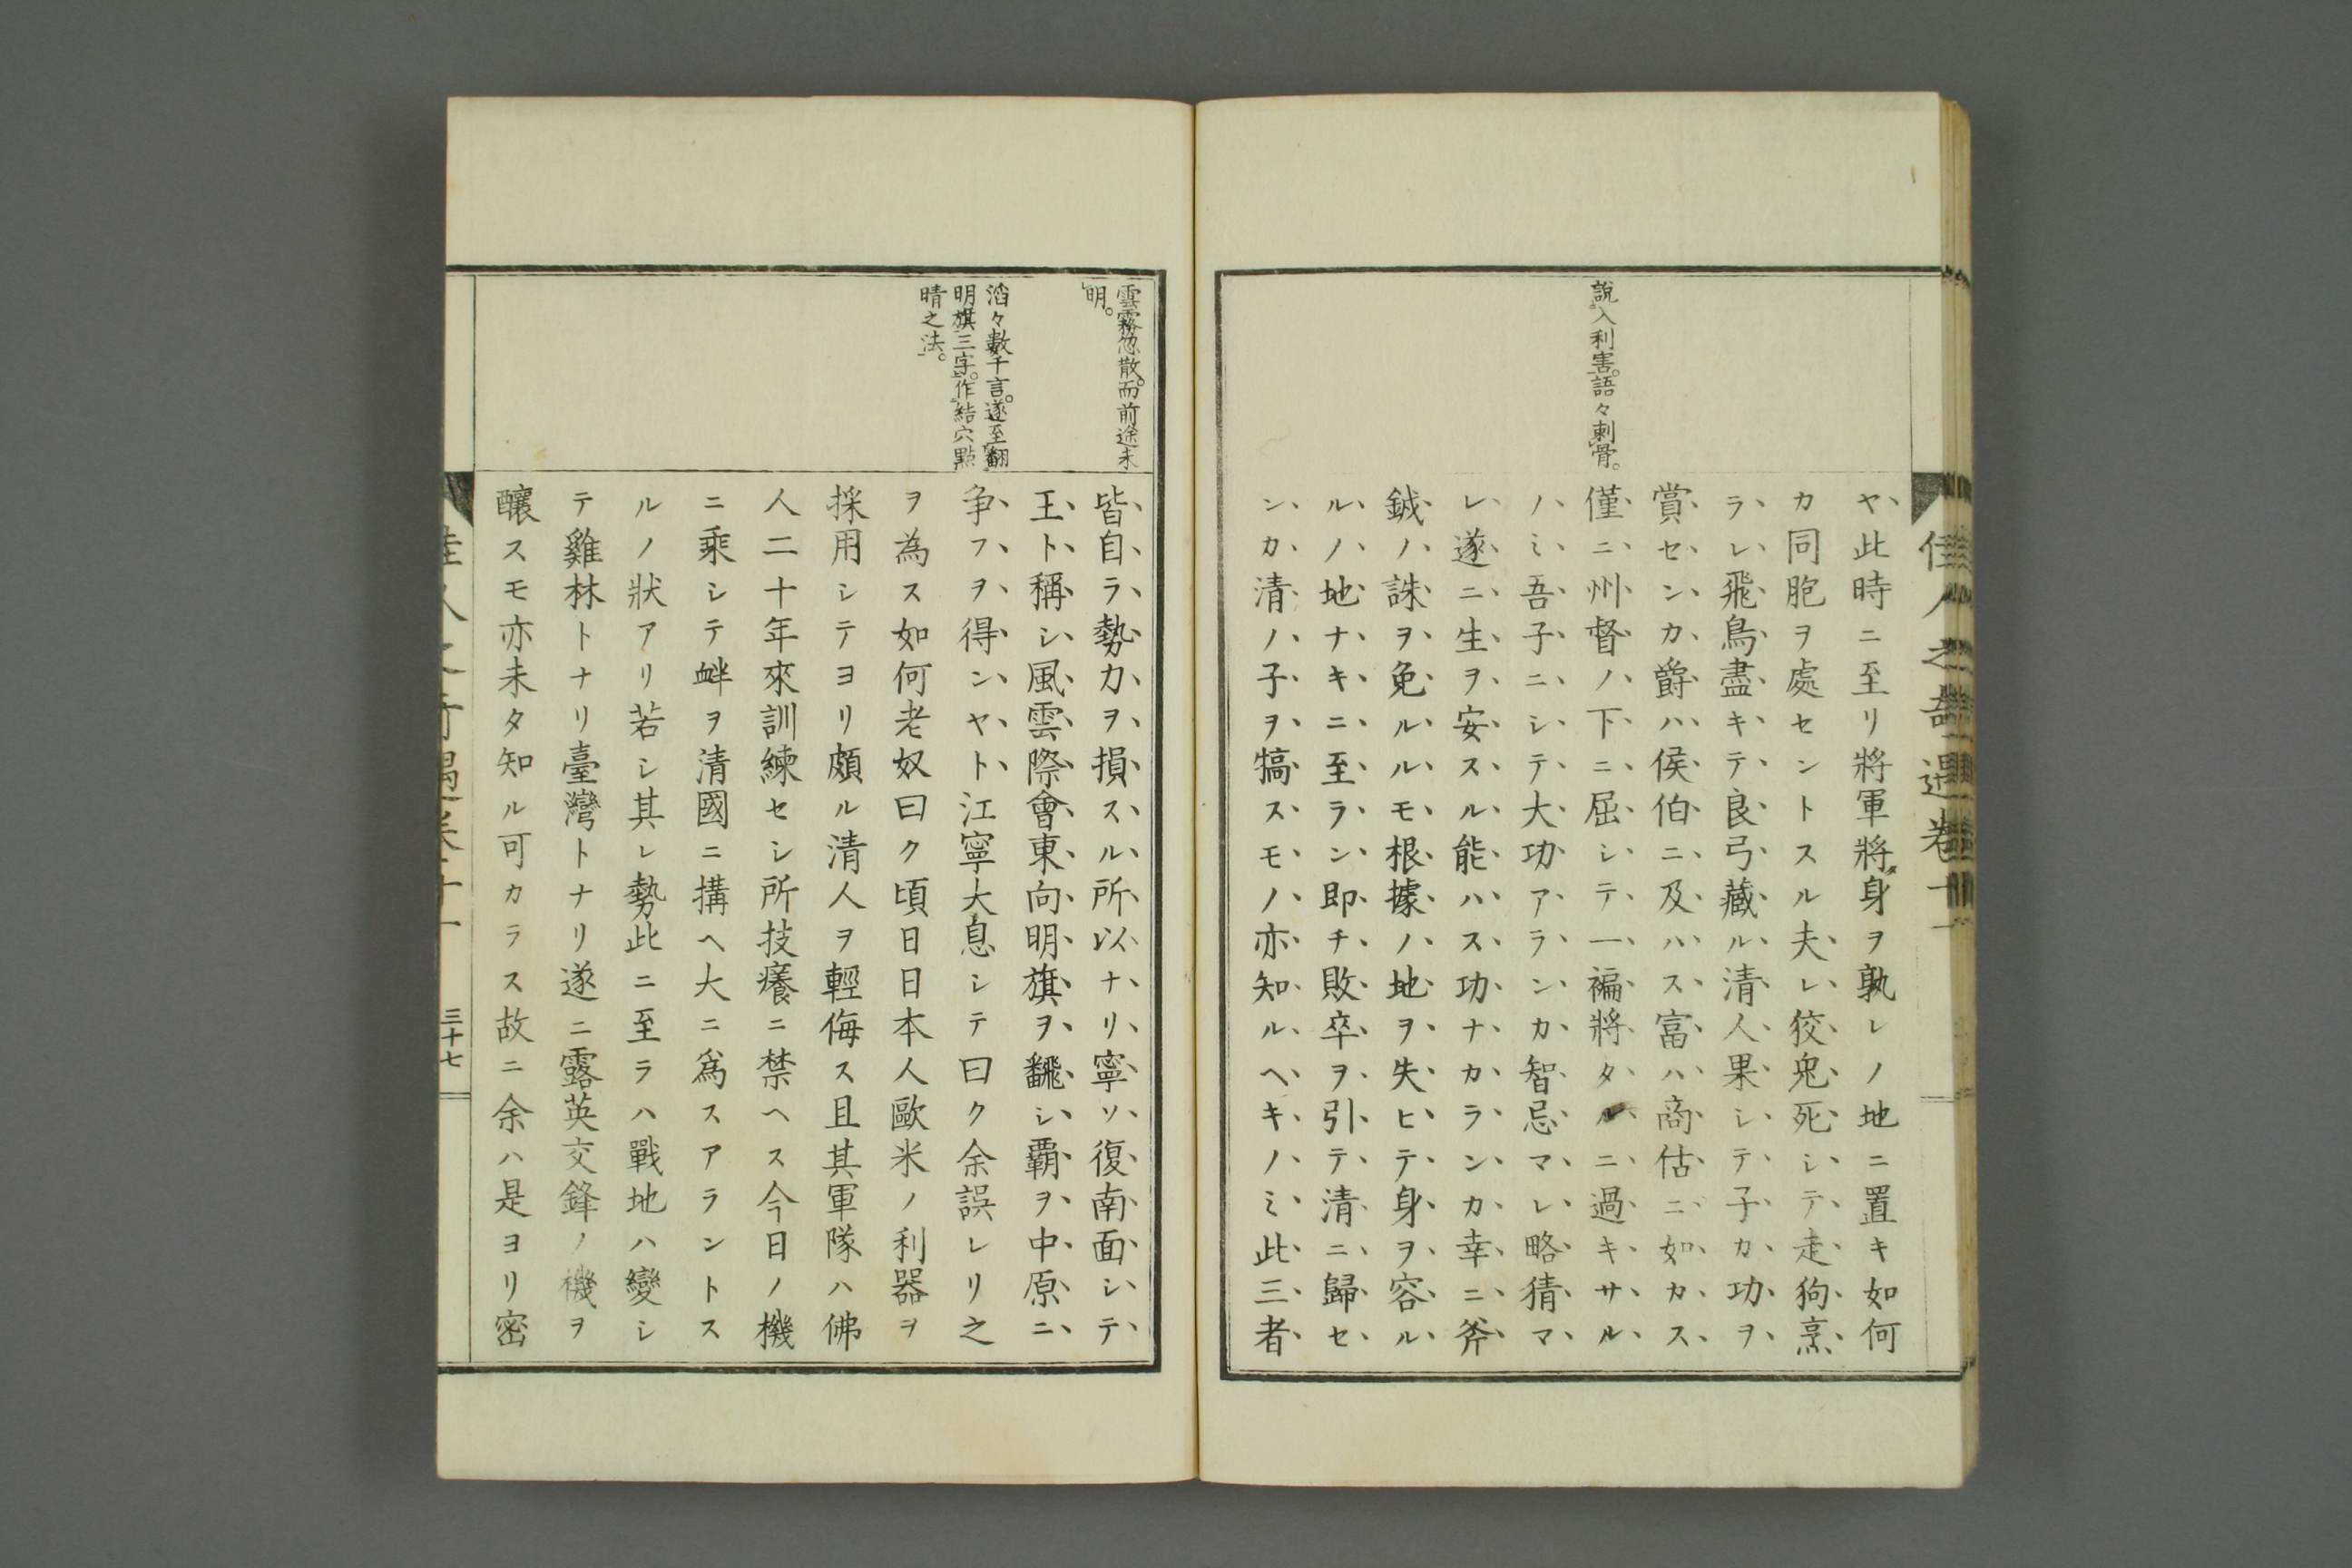 佳人之奇遇卷十一
說入利害。語々刺骨。
ヤ此時ニ至リ將軍將身ヲ孰レノ地ニ置キ如何
カ同胞ヲ處セントスル夫レ狡兎死シテ走狗烹
ラレ飛鳥盡キテ良弓藏ル清人果シテ子カ功ヲ
賞センカ爵ハ侯伯ニ及ハス富ハ商估ニ如カス
僅ニ州督ノ下ニ屈シテ一褊將タルニ過キサル
ノミ吾子ニシテ大功アランカ智忌マレ略猜マ
レ遂ニ生ヲ安スル能ハス功ナカランカ幸ニ斧
鉞ノ誅ヲ免ルルモ根據ノ地ヲ失ヒテ身ヲ容ル
ルノ地ナキニ至ラン即チ敗卒ヲ引テ清ニ歸セ
ンカ清ノ子ヲ犒スモノ亦知ルヘキノミ此三者
雲霧忽散。而前途未
明。
滔々數千言。遂至翻
明旗三字。作結穴點
晴之法。
皆自ラ勢力ヲ損スル所以ナリ寧ソ復南面シテ
王ト稱シ風雲際會東向明旗ヲ飜シ覇ヲ中原ニ
争フヲ得ンヤト江寧大息シテ曰ク余誤レリ之
ヲ為ス如何老奴曰ク頃日日本人歐米ノ利器ヲ
採用シテヨリ頗ル清人ヲ輕侮ス且其軍隊ハ佛
人二十年來訓練セシ所技癢ニ禁ヘス今日ノ機
ニ乘シテ衅ヲ清國ニ搆ヘ大ニ爲スアラントス
ルノ狀アリ若シ其レ勢此ニ至ラハ戰地ハ變シ
テ雞林トナリ臺灣トナリ遂ニ露英交鋒ノ機ヲ
釀スモ亦未タ知ル可カラス故ニ余ハ是ヨリ密
佳人之奇遇卷十一
三十七